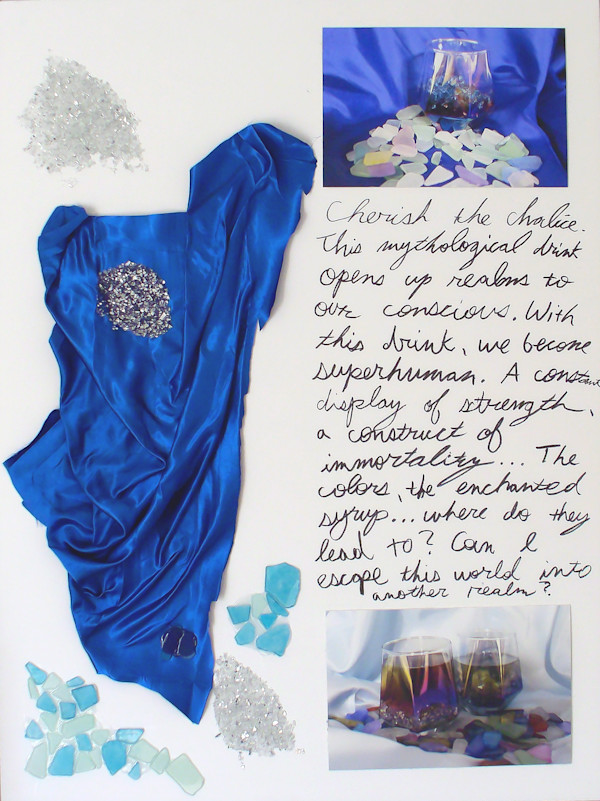 Cherish the chalice.
This mythological drink
opens up realms to
our conscious. With
this drink, we become
superhuman. A constant
display of strength,
a construct of
immortality... The
colors, the enchanted
syrup... where do they
lead to? Can I
escape this world into
another realm?